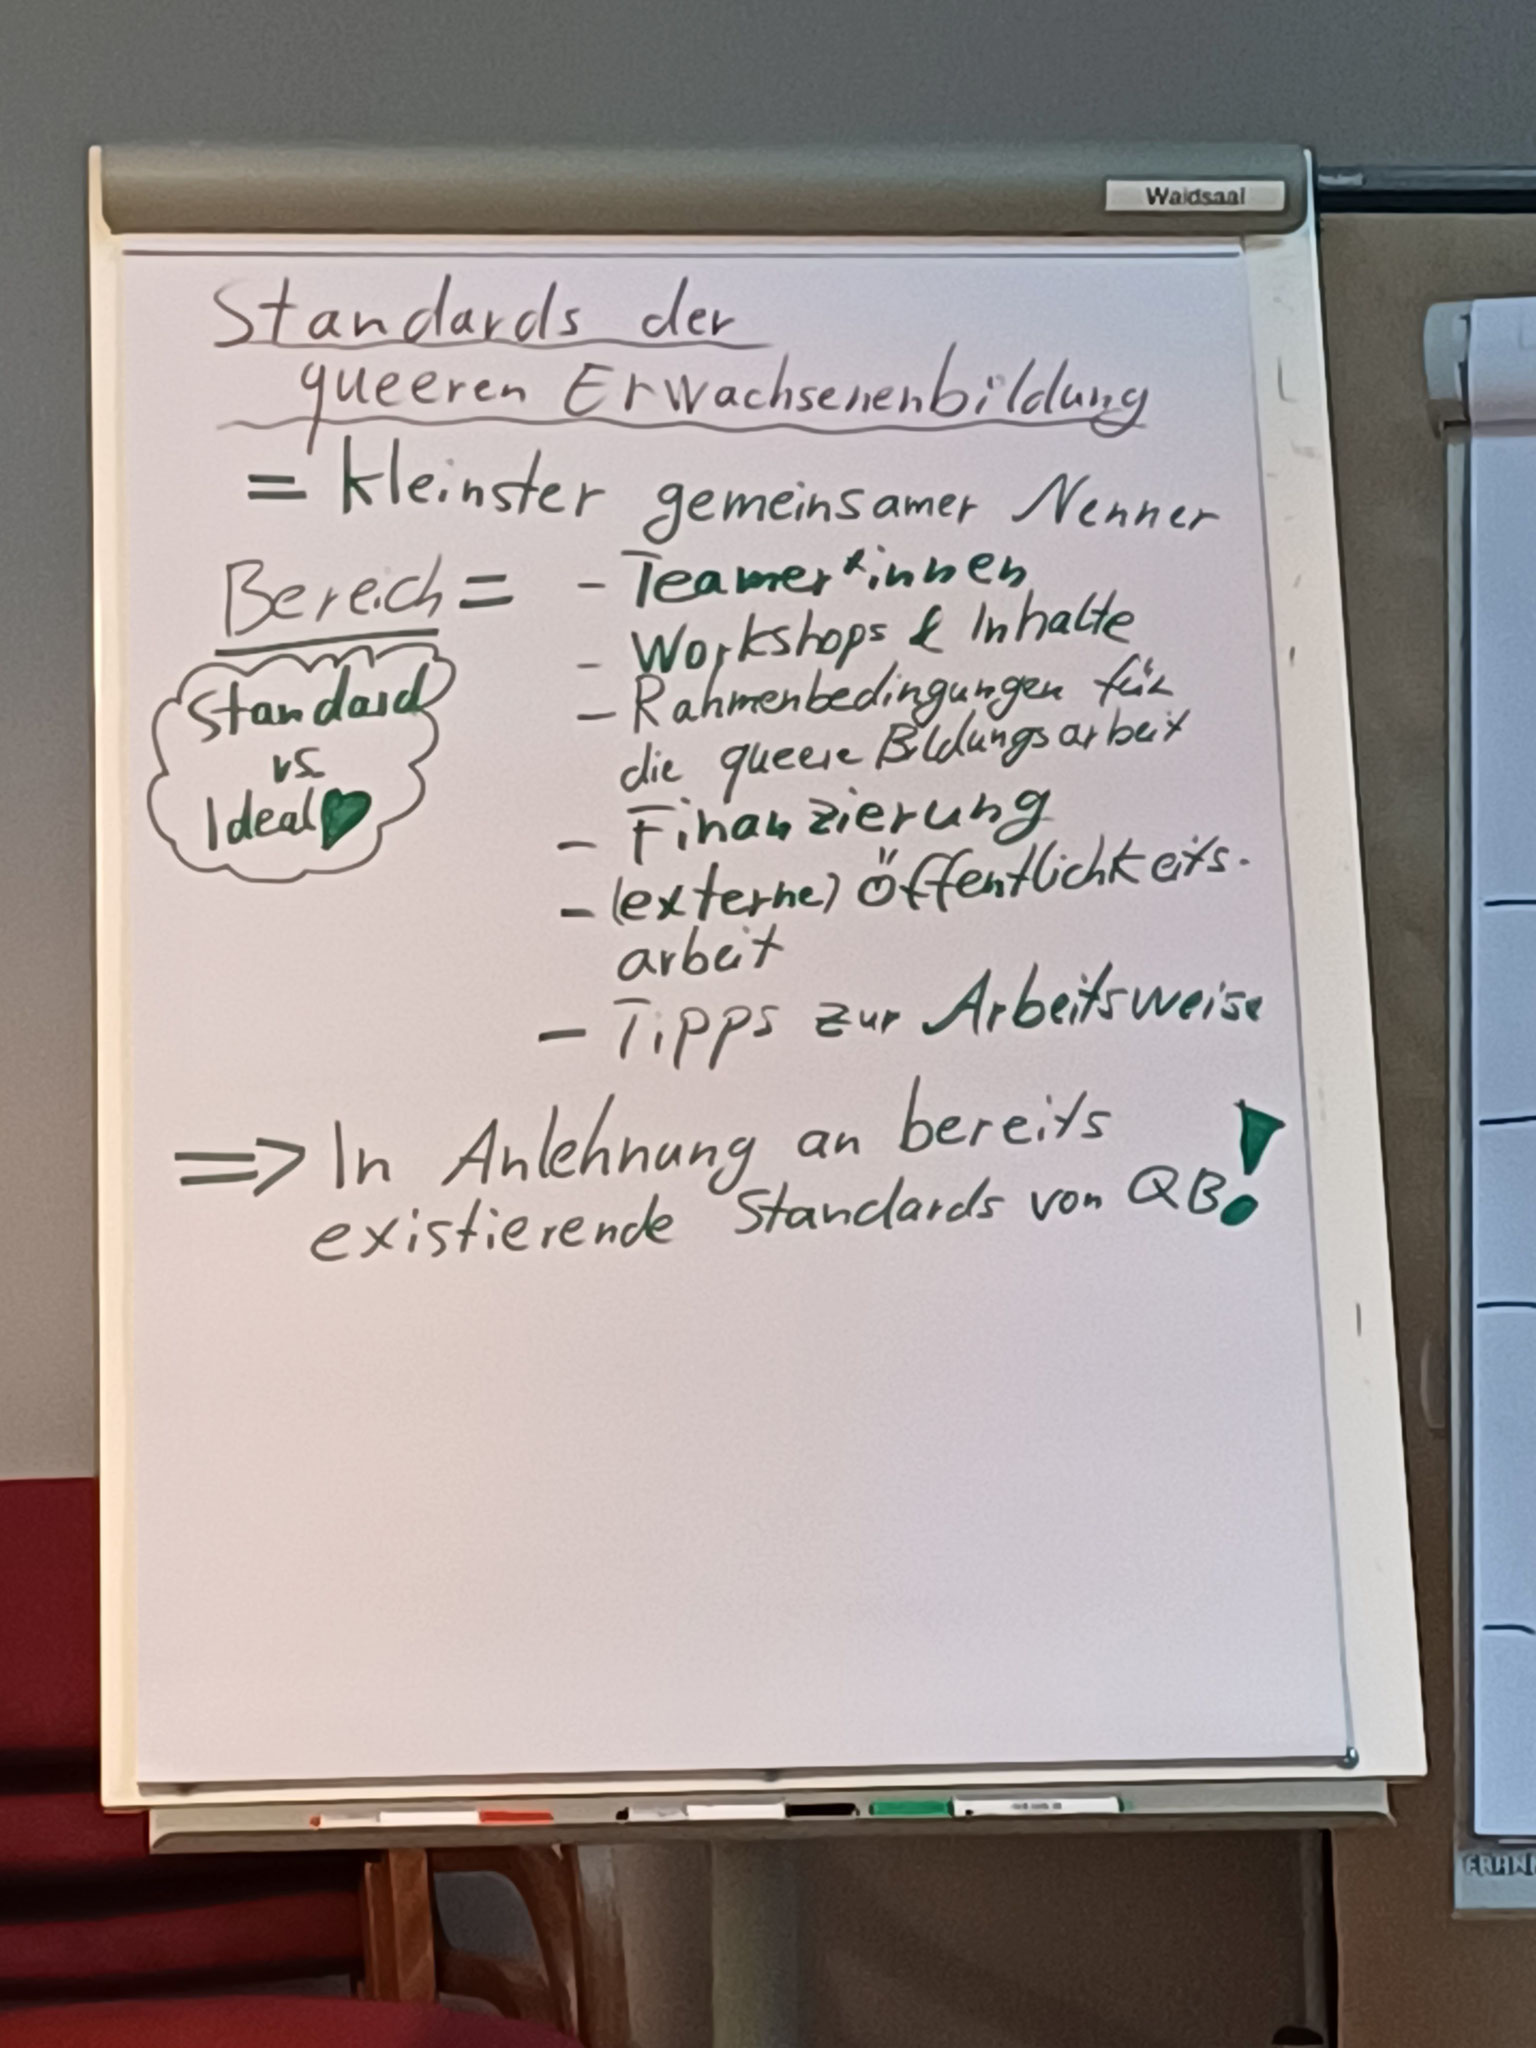 Waldsaal
Standards der
queeren Erwachsenenbildung
= kleinster gemeinsamer Nenner
Bereich = - Teamer*innen
- Workshops & Inhalte
- Rahmenbedingungen für
die queere Bildungsarbeit
- Finanzierung
- (externe) Öffentlichkeits-
arbeit
- Tipps zur Arbeitsweise
Standard
vs.
Ideal
=> In Anlehnung an bereits
existierende Standards von QB!
FRAN